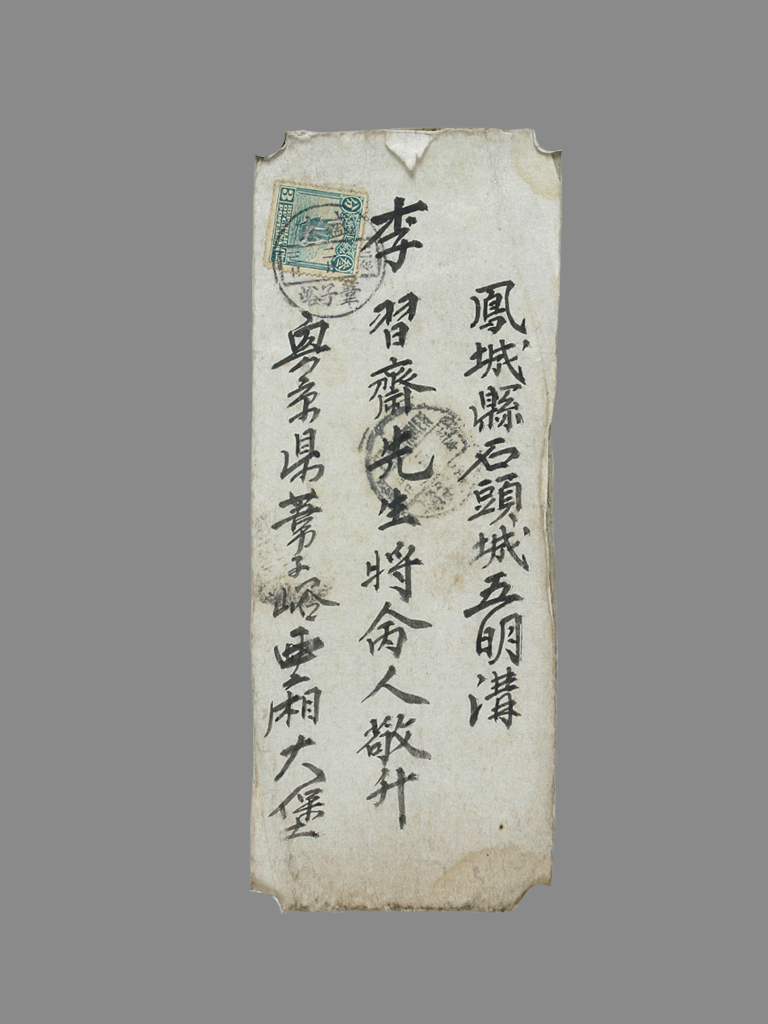 鳳城縣石頭城五明溝
李習齋先生將 人敬升
興京県葦子峪 廂大堡
3
分
叁
葦子峪